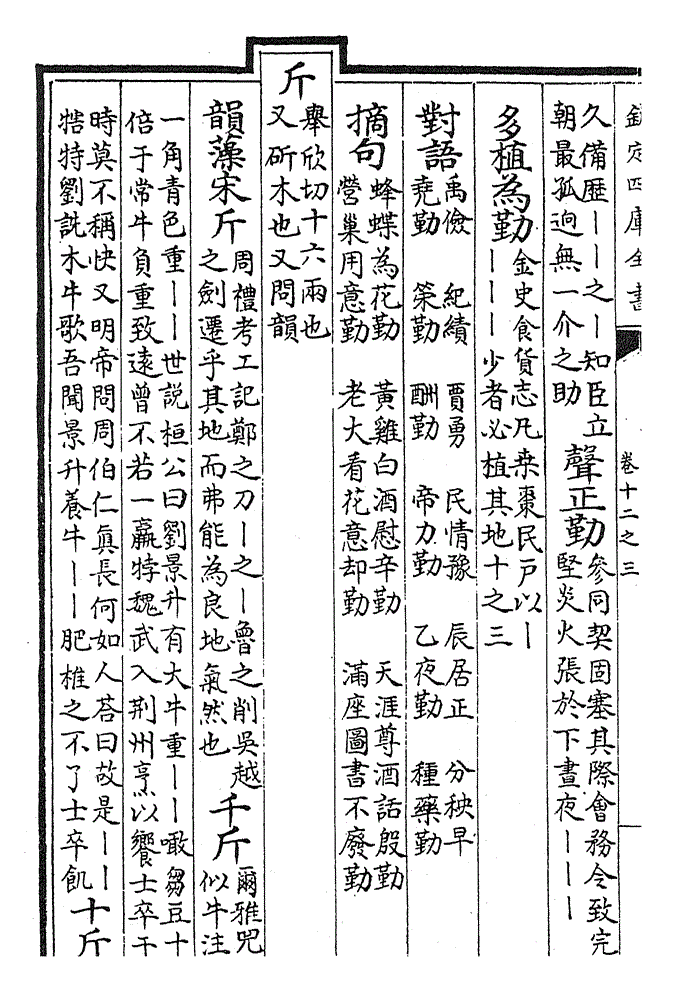 欽定四庫全書 卷十二之三
久備歷丨丨之丨知臣立
朝最孤迥無一介之助
聲正勤
參同契固塞其際會務令致完
堅炎火張於下晝夜丨丨丨
多植為勤
金史食貨志凡桑棗民戶以丨
丨丨丨少者必植其地十之三
對語
禹儉 紀績 賈勇 民情豫 辰居正 分秧早
堯勤 策勤 酬勤 帝力勤 乙夜勤 種藥勤
摘句
蜂蝶為花勤 黃雞白酒慰辛勤 天涯尊酒話殷勤
營巢用意勤 老大看花意却勤 滿座圖書不廢勤
斤
舉欣切十六兩也
又斫木也又問韻
韻藻宋斤
周禮考工記鄭之刀丨之丨魯之削吳越
之劍遷乎其地而弗能為良地氣然也
千斤
爾雅兕
似牛注
一角青色重丨丨世說桓公曰劉景升有大牛重丨丨噉芻豆十
倍于常牛負重致遠曾不若一羸牸魏武入荊州烹以饗士卒于
時莫不稱快又明帝問周伯仁真長何如人荅曰故是丨丨
犗特劉詵木牛歌吾聞景升養牛丨丨肥椎之不了士卒飢
十斤